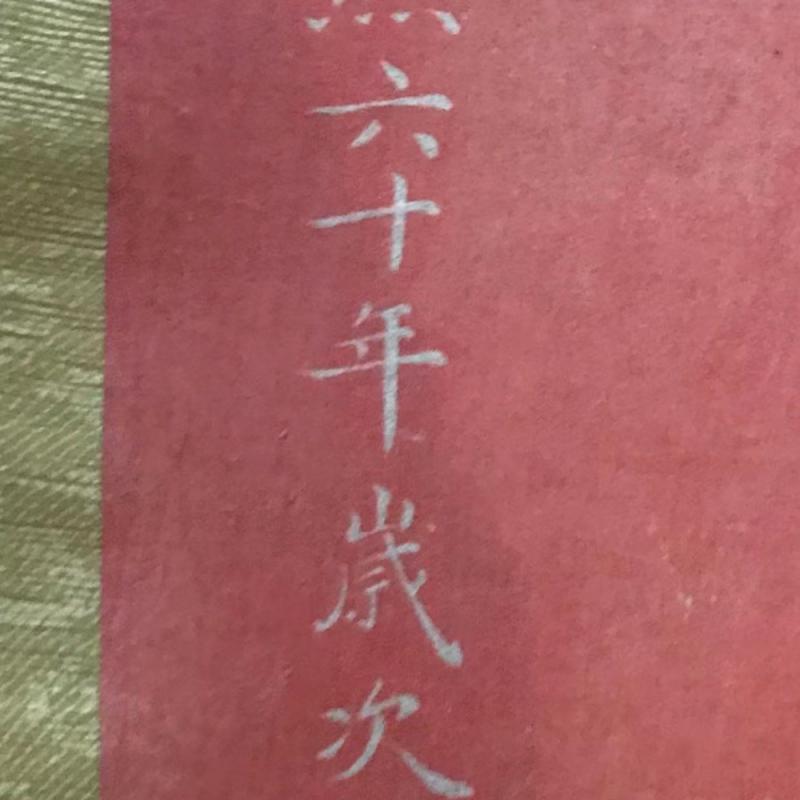 六十年歳次